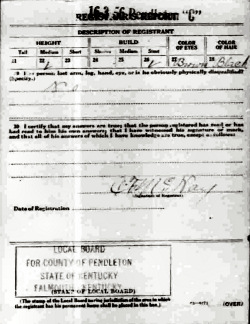 REGISTRAR'S REPORT
DESCRIPTION OF REGISTRANT
HEIGHT BUILD COLOR OF EYES COLOR OF HAIR
Tall Medium Short Slender Medium Stout
21 22 23 24 25 26 27 28
Brown Black
29 Has person lost arm, leg, hand, eye, or is he obviously physically disqualified?
(Specify.)
No
30 I certify that my answers are true; that the person registered has read or has
had read to him his own answers; that I have witnessed his signature or mark,
and that all of his answers of which I have knowledge are true, except as follows:
(Signature of Registrar)
Date of Registration
LOCAL BOARD
FOR COUNTY OF PENDLETON
STATE OF KENTUCKY
FALMOUTH, KENTUCKY
(STAMP OF LOCAL BOARD)
(The stamp of the Local Board having jurisdiction of the area in which
the registrant has his permanent home shall be placed in this box.)
(OVER)